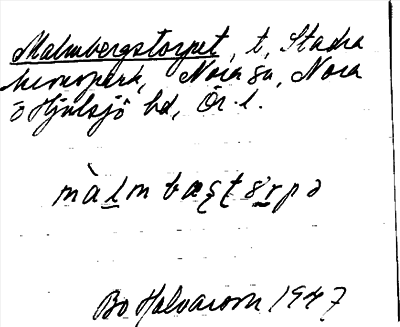 Malmbergstorpet, t, Stadra
hemmpark, Nora sn, Nora
o Hjulsjö bd, Ör. l.
màlmbæșțórpə
Bo Halvarson 1947